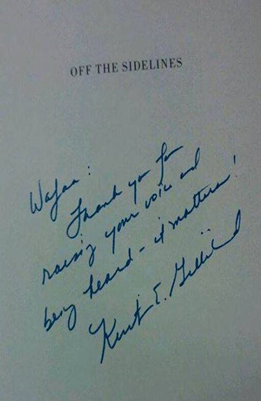 OFF THE SIDELINES
Wafaa:
Thank you for
raising your voice and
being heard - it matters!
Kirsten E. Gillibrand